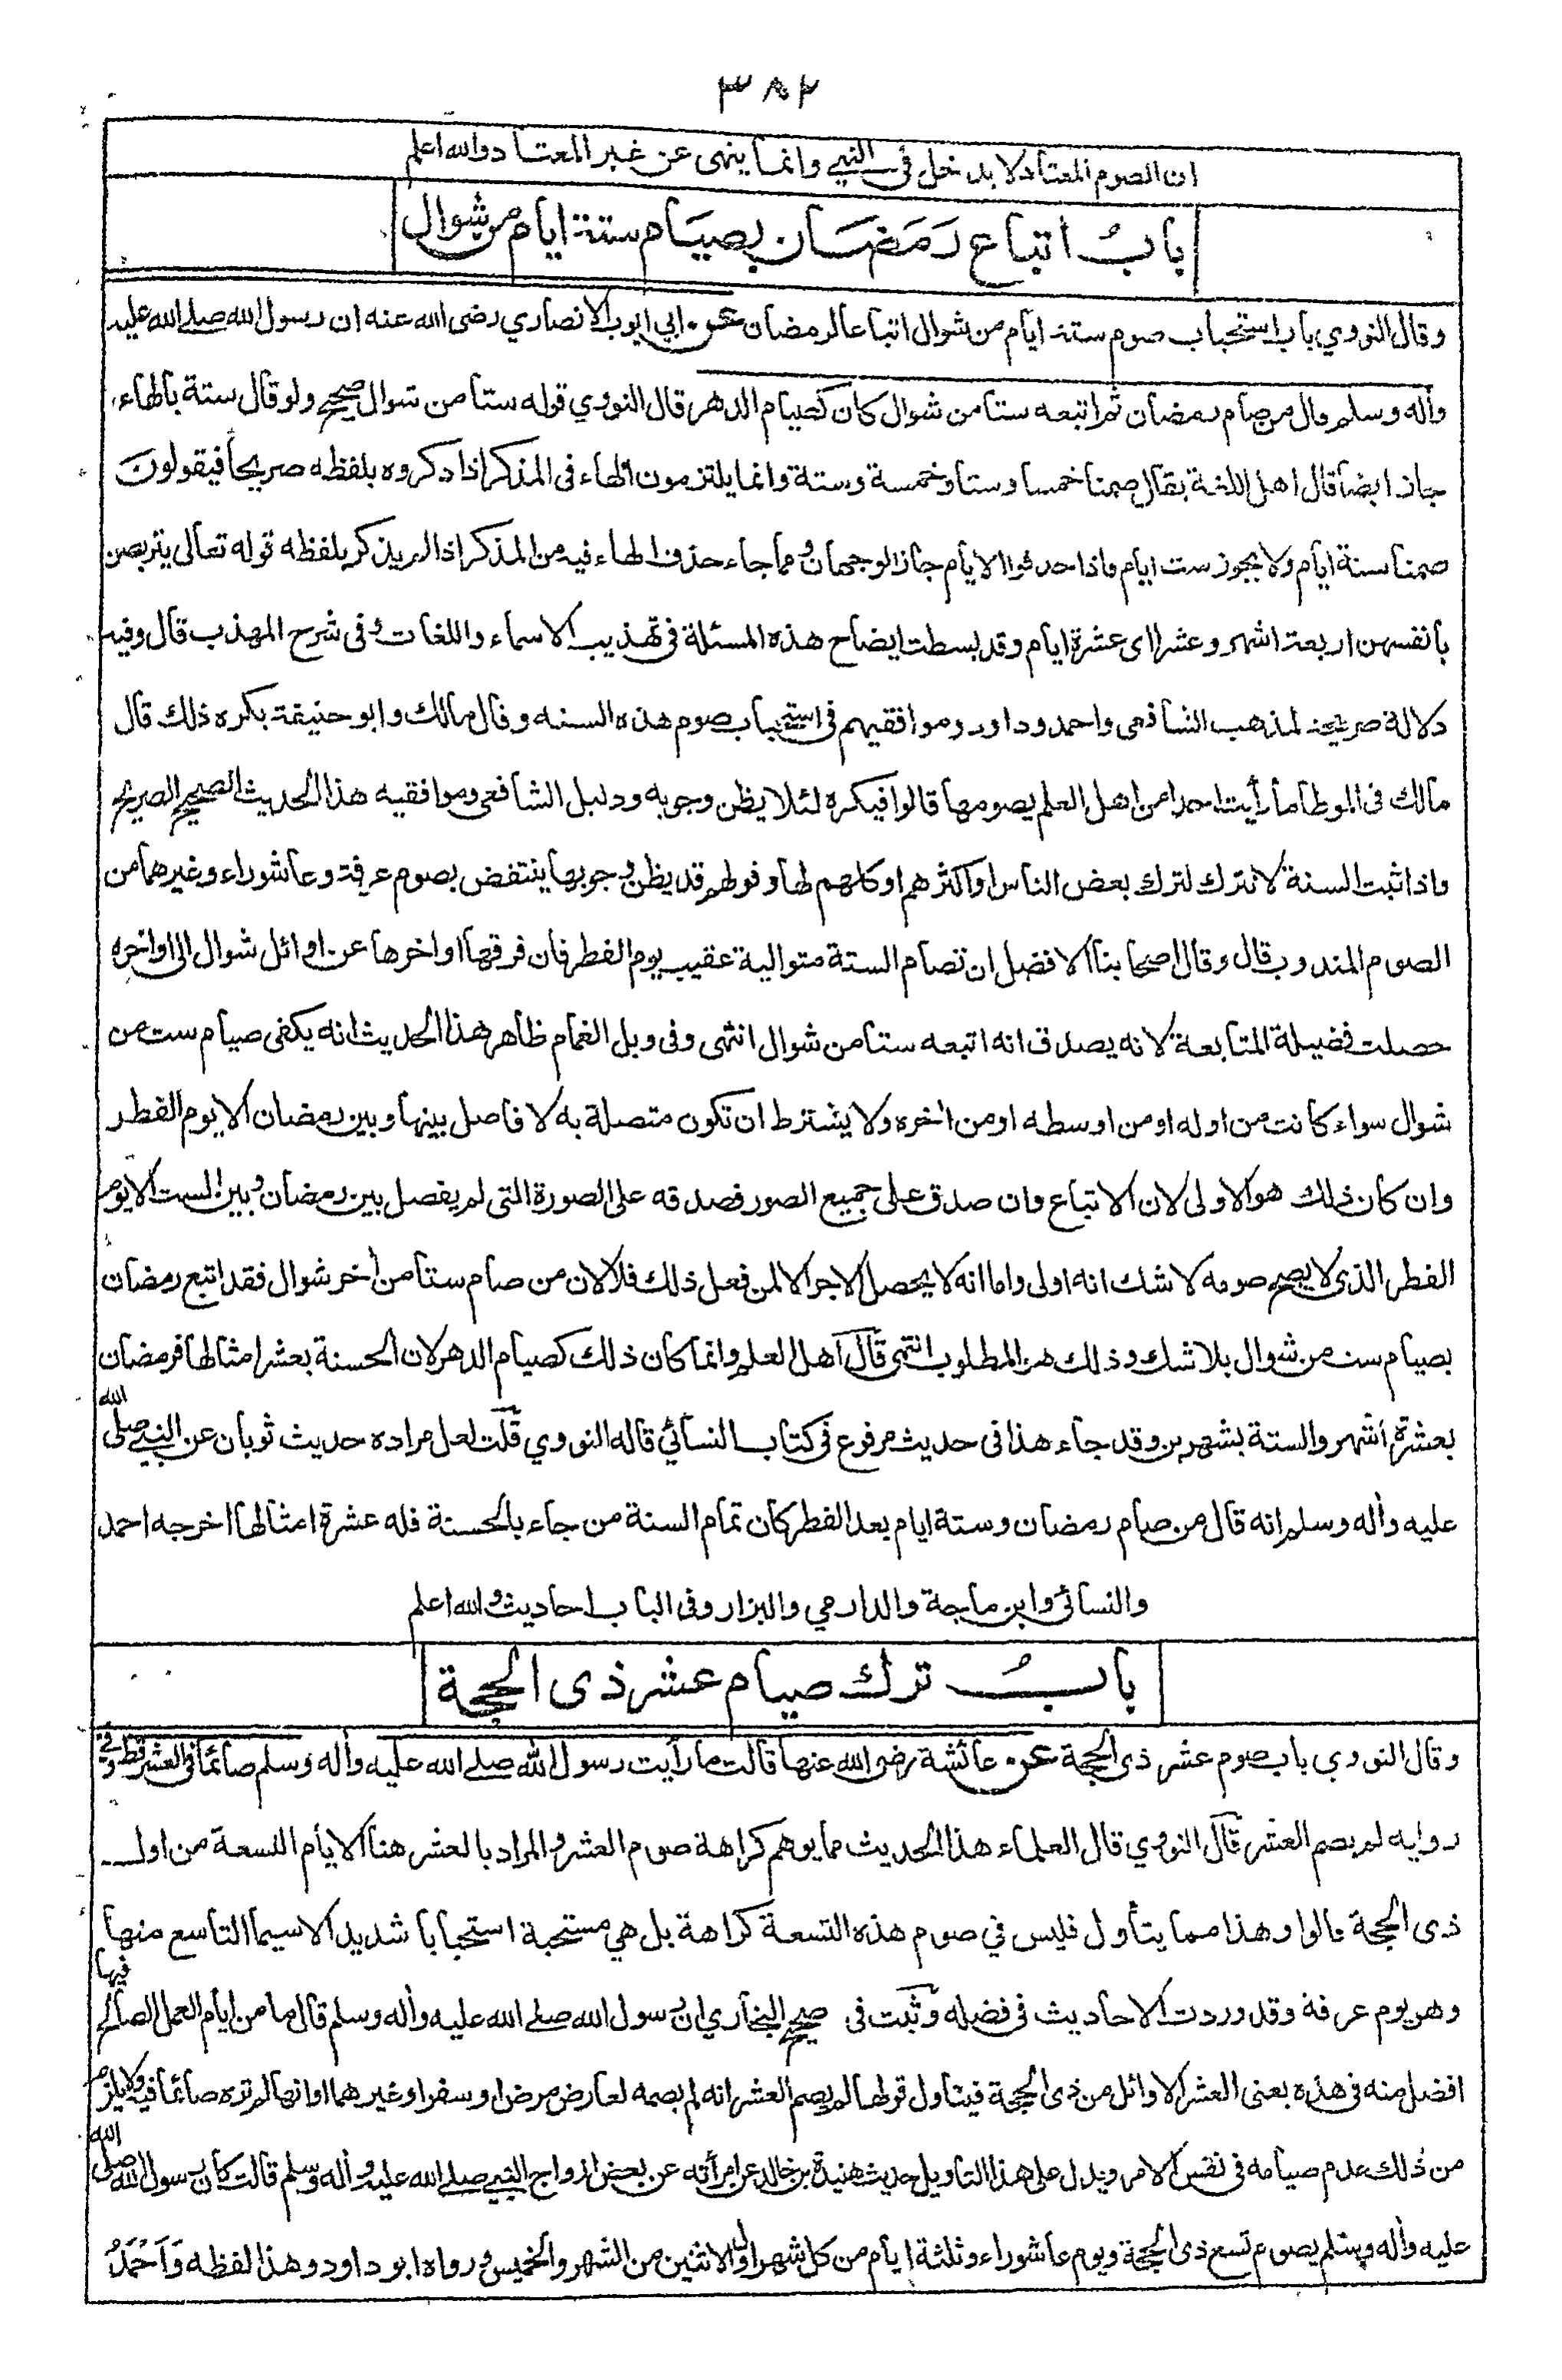 ٣٨٢
ان الصوم المعتاد لا يدخل في النهي وانما ينهى عن غير المعتاد والله اعلم
باب اتباع رمضان بصيام ستة ايام من شوال
وقال النووي باب استحباب صوم ستة ايام من شوال اتباعا لرمضان عن ابي ايوب الانصاري رضى الله عنه ان رسول الله صلے الله عليه
وأله وسلم قال من صام رمضان ثم اتبعه ستا من شوال كان كصيام الدهر قال النووي قوله ستا من شوال صحيح ولو قال ستة بالهاء
جاز ايضا قال اهل اللغة يقال صمنا خمسا وستا وخمسة وستة وانما يلتزمون الهاء فى المذكر اذا ذكروه بلفظه صريحا فيقولون
صمنا ستة ايام ولا يجوز ست ايام واذا حذفوا الايام جاز الوجهان ومما جاء حذف الهاء فيه من المذكر اذا لم يذكر بلفظه قوله تعالى يتربصن
بانفسهن اربعة اشهر وعشرا اى عشرة ايام وقد بسطت ايضاح هذه المسئلة فى تهذيب الاسماء واللغات وفى شرح المهذب قال وفيه
دلالة صريحة لمذهب الشافعى واحمد وداود وموافقيهم فى استحباب صوم هذه الستة وقال مالك وابو حنيفة يكره ذلك قال
مالك فى الموطا ما رأيت احدا من اهل العلم يصومها قالوا فيكره لئلا يظن وجوبه ودليل الشافعى وموافقيه هذا الحديث الصحيح الصريح
واذا ثبت السنة لا تترك لترك بعض الناس او اكثرهم او كلهم لها وقولهم قد يظن وجوبها ينتقض بصوم عرفة وعاشوراء وغيرهما من
الصوم المندوب قال وقال اصحابنا الافضل ان تصام الستة متوالية عقيب يوم الفطر فان فرقها او اخرها عن اوائل شوال الى اواخره
حصلت فضيلة المتابعة لانه يصدق انه اتبعه ستا من شوال انتهى وفى وبل الغمام ظاهر هذا الحديث انه يكفى صيام ست من
شوال سواء كانت من اوله او من اوسطه او من أخره ولا يشترط ان تكون متصلة به لا فاصل بينها وبين رمضان الا يوم الفطر
وان كان ذلك هو الاولى لان الاتباع وان صدق على جميع الصور فصدقه على الصورة التى لم يفصل بين رمضان وبين الست الا يوم
الفطر الذى لا يصح صومه لا شك انه اولى واما انه لا يحصل الاجر الا لمن فعل ذلك فلا لان من صام ستا من أخر شوال فقد اتبع رمضان
بصيام ست من شوال بلا شك وذلك هو المطلوب انتهى قال اهل العلم وانما كان ذلك كصيام الدهر لان الحسنة بعشر امثالها فرمضان
بعشرة اشهر والستة بشهرين وقد جاء هذا فى حديث مرفوع فى كتاب النسائي قاله النووي قلت لعل مراده حديث ثوبان عن النبي صلى الله
عليه وأله وسلم انه قال من صام رمضان وستة ايام بعد الفطر كان تمام السنة من جاء بالحسنة فله عشرة امثالها اخرجه احمد
والنسائى وابن ماجة والدارمي والبزار وفى الباب احاديث والله اعلم
باب ترك صيام عشر ذى الحجة
وقال النووي باب صوم عشر ذى الحجة عن عائشة رضى الله عنها قالت ما رأيت رسول الله صلے الله عليه وأله وسلم صائما فى العشر قط وفي
رواية لم يصم العشر قال النووي قال العلماء هذا الحديث مما يوهم كراهة صوم العشر والمراد بالعشر هنا الايام التسعة من اول
ذى الحجة قالوا وهذا مما يتأول فليس في صوم هذه التسعة كراهة بل هي مستحبة استحبابا شديدا لاسيما التاسع منها
وهو يوم عرفة وقد وردت الاحاديث فى فضله وثبت فى صحيح البخاري ان رسول الله صلے الله عليه وأله وسلم قال ما من ايام العمل الصالح فيها
افضل منه فى هذه يعنى العشر الاوائل من ذى الحجة فيتاول قولها لم يصم العشر انه لم يصمه لعارض مرض او سفر او غيرهما او انها لم تره صائما فيه ولا يلزم
من ذلك عدم صيامه فى نفس الامر ويدل على هذا التاويل حديث هنيدة بن خالد عن امرأته عن بعض ازواج النبي صلے الله عليه وأله وسلم قالت كان رسول الله صلى الله
عليه وأله وسلم يصوم تسع ذى الحجة ويوم عاشوراء وثلثة ايام من كل شهر اول الاثنين من الشهر والخميس ورواه ابو داود وهذا لفظه وَاَحْمَدُ